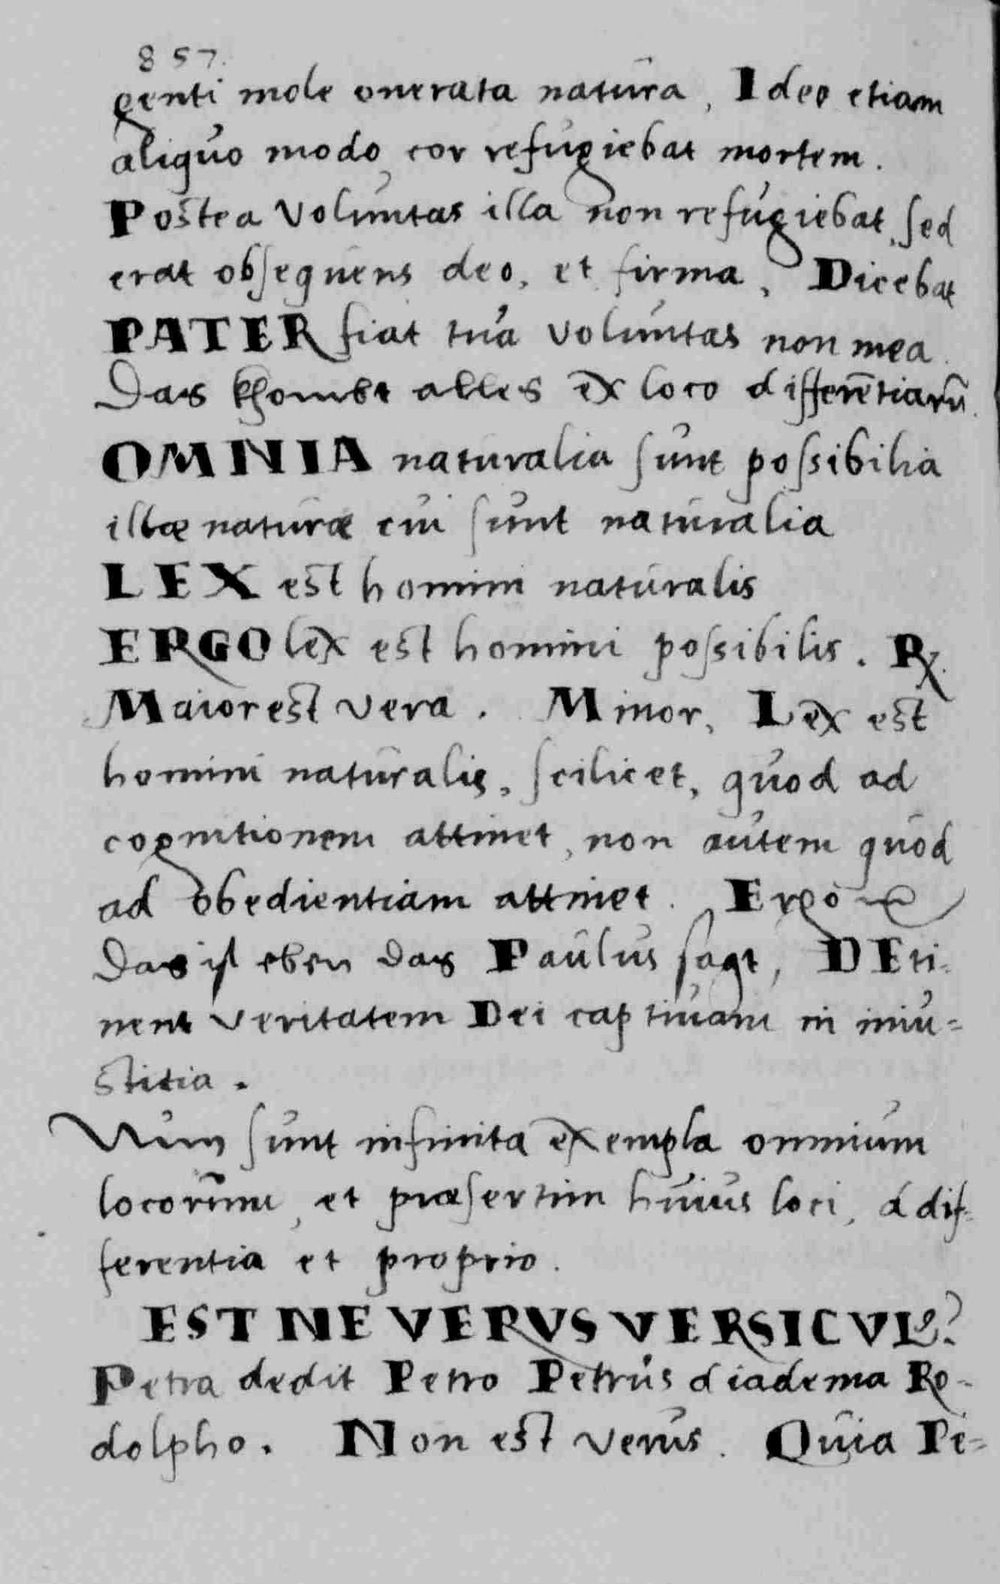 857.
genti mole onerata natura, Ideo etiam
aliquo modo cor refugiebat mortem.
Postea voluntas illa non refugiebat, sed
erat obsequens deo, et firma, Dicebat
PATER fiat tua voluntas non mea
Das khombt alles ex loco differētiarū.
OMNIA naturalia sunt possibilia
illæ naturæ cui sunt naturalia
LEX est homini naturalis
ERGO lex est homini possibilis. ℞.
Maior est vera. Minor, Lex est
homini naturalis, scilicet, quod ad
cognitionem attinet, non autem quod
ad obedientiam attinet. Ergo
Das ist eben das Paulus sagt, DEti-
nent veritatem Dei captivam in iniu-
stitia.
Nun sunt infinita exempla omnium
locorum, et præsertim huius loci, a dif-
ferentia et proprio.
EST NE VERVS VERSICVL9?
Petra dedit Petro Petrus diadema Ro-
dolpho. Non est verus. Quia Pe-